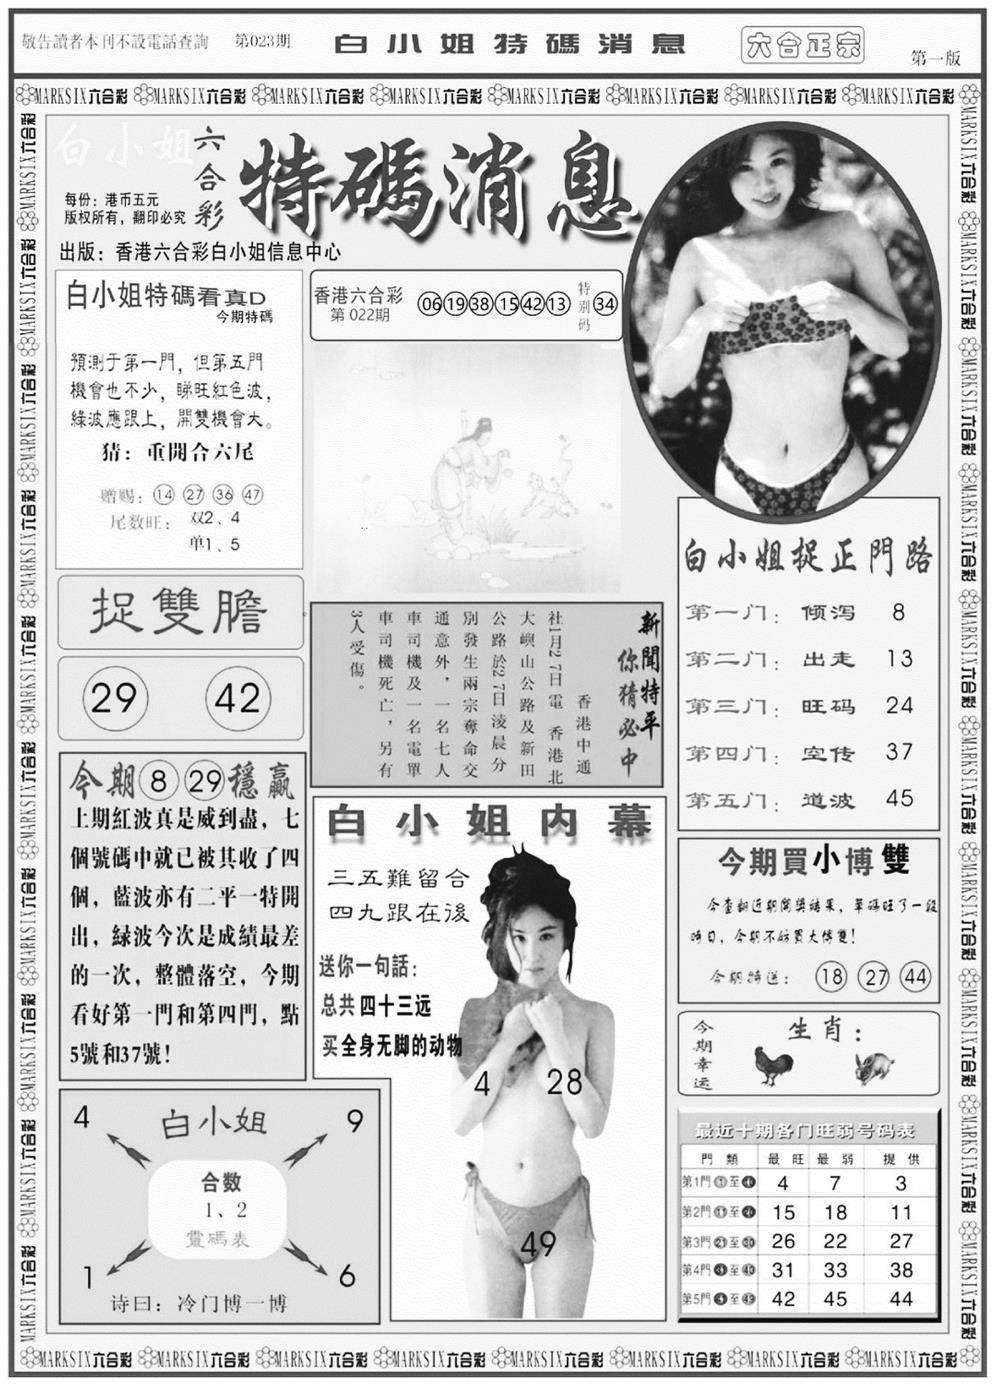 敬告讀者本刊不設電話查詢 第023期 白小姐特碼消息 六合正宗 第一版
MARKSIX六合彩 MARKSIX六合彩 MARKSIX六合彩 MARKSIX六合彩 MARKSIX六合彩 MARKSIX六合彩 MARKSIX六合彩 MARKSIX六合彩
白小姐
六合彩
特碼消息
每份：港币五元
版权所有，翻印必究
出版：香港六合彩白小姐信息中心
白小姐特碼看真D
今期特碼
預測于第一門，但第五門
機會也不少，睇旺紅色波，
綠波應跟上，開雙機會大。
猜：重開合六尾
赠赐：14 27 36 47
尾数旺：双2、4
单1、5
香港六合彩
第 022期
06 19 38 15 42 13 特别码 34
捉雙膽
29 42
新聞特平
你猜必中
香港中通
社1月27日電 香港北
大嶼山公路及新田
公路於27日淩晨分
別發生兩宗奪命交
通意外，一名七人
車司機及一名電單
車司機死亡，另有
3人受傷。
白小姐捉正門路
第一门：倾泻 8
第二门：出走 13
第三门：旺码 24
第四门：空传 37
第五门：道波 45
今期 8 29 穩贏
上期紅波真是威到盡，七
個號碼中就已被其收了四
個，藍波亦有二平一特開
出，緑波今次是成績最差
的一次，整體落空，今期
看好第一門和第四門，點
5號和37號！
白小姐内幕
三五難留合
四九跟在後
送你一句話：
总共四十三远
买全身无脚的动物
4 28
49
今期買小博雙
今查翻近期開獎結果，單碼旺了一段
時日，今期不妨買大博雙！
今期特送：18 27 44
今期幸运
生肖：
4 白小姐 9
合数
1、2
靈碼表
1 6
诗曰：冷门博一博
最近十期各门旺弱号码表
門類 最旺 最弱 提供
第1門①至⑩ 4 7 3
第2門⑪至⑳ 15 18 11
第3門㉑至㉚ 26 22 27
第4門㉛至㊵ 31 33 38
第5門㊶至㊾ 42 45 44
MARKSIX六合彩 MARKSIX六合彩 MARKSIX六合彩 MARKSIX六合彩 MARKSIX六合彩 MARKSIX六合彩 MARKSIX六合彩 MARKSIX六合彩